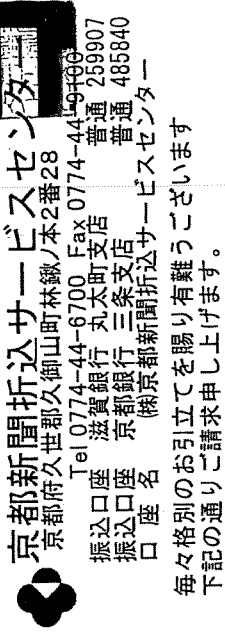 京都新聞折込サービスセンター
京都府久世郡久御山町林鍬ノ本2番28
Tel 0774-44-6700 Fax 0774-44-9100
振込口座 滋賀銀行 丸太町支店 普通 259907
振込口座 京都銀行 三条支店 普通 485840
口座名 ㈱京都新聞折込サービスセンター
毎々格別のお引立てを賜り有難うございます
下記の通りご請求申し上げます。